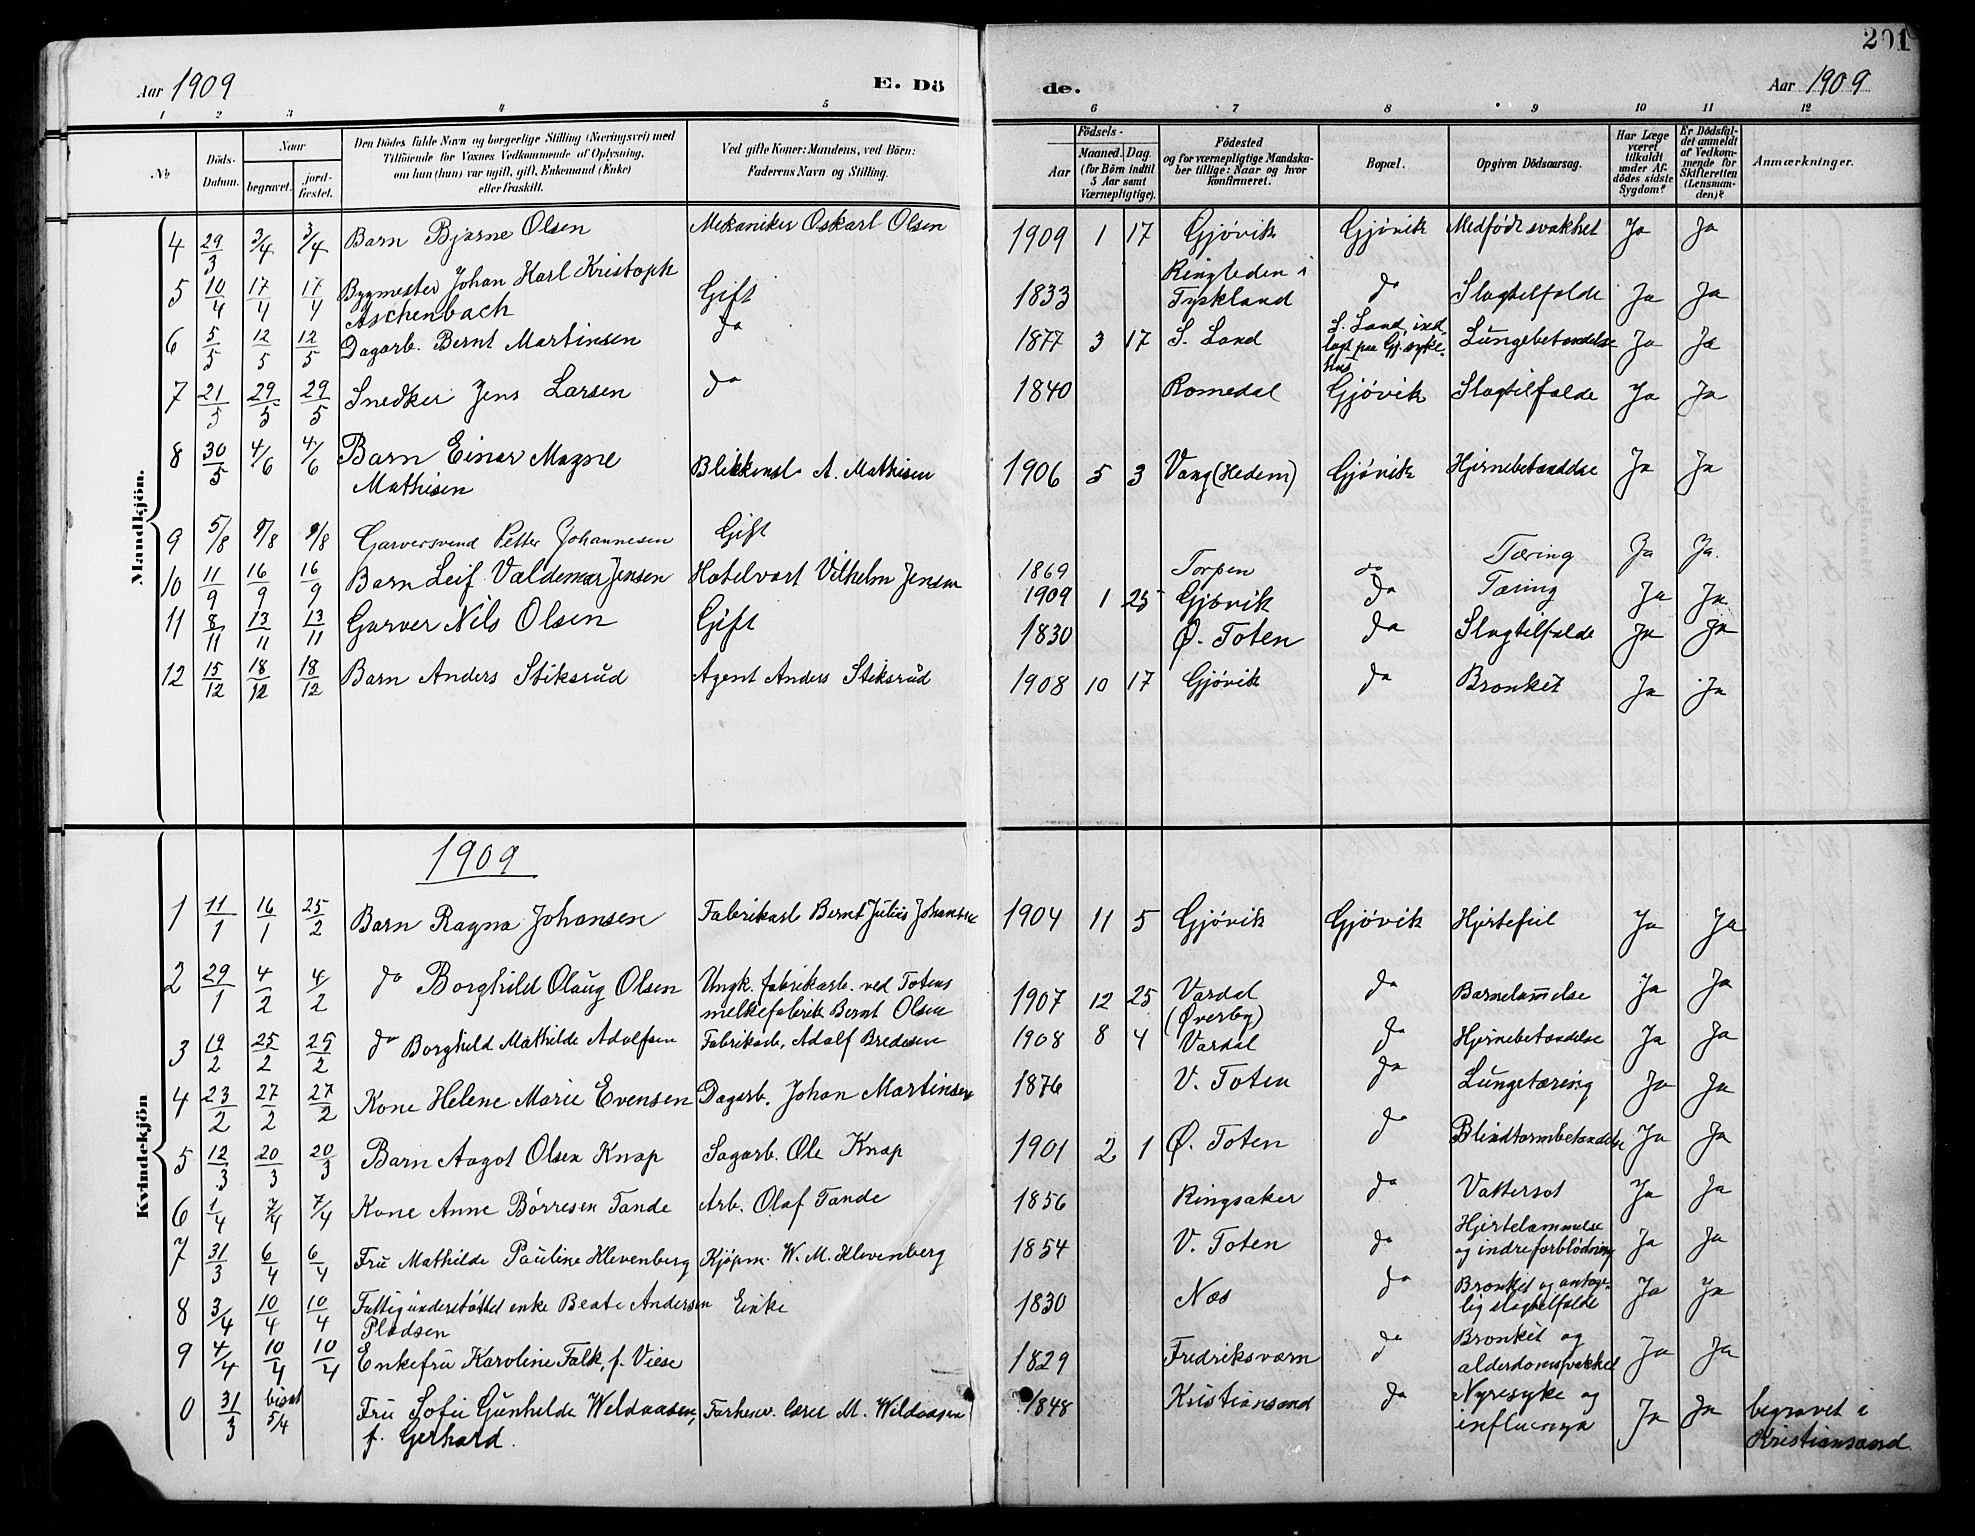 201
Aar 1909 E. Dö de. Aar 1909
1 2 3 4 5 6 7 8 9 10 11 12
No
Döds-Datum.
Naar
begravet.
jord-fæstet.
Den Dödes fulde Navn og borgerlige Stilling (Næringsvei) med
Tilföiende for Voxnes Vedkommende af Oplysning,
om han (hun) var ugift, gift, Enkemand (Enke)
eller fraskilt.
Ved gifte Koner: Mandens, ved Börn:
Faderens Navn og Stilling.
Födsels-
Aar
Maaned. Dag.
(for Börn indtil
5 Aar samt
Værnepligtige).
Födested
og for værnepligtige Mandska-
ber tillige: Naar og hvor
konfirmeret.
Bopæl.
Opgiven Dödsaarsag.
Har Læge
været
tilkaldt
under Af-
dödes sidste
Sygdom?
Er Dödsfal-
det anmeldt
af Vedkom-
mende for
Skifteretten
(Lensman-
den)?
Anmærkninger.
Mandkjön.
4 29/3 3/4 3/4 Barn Bjarne Olsen Mekaniker Oskarl Olsen 1909 1 17 Gjøvik Gjøvik Medfødt svakhet Ja Ja
5 10/4 17/4 17/4 Bygmester Johan Karl Kristoph
Aschenbach Gift 1833 Ringleden i
Tyskland do Slagtilfælde Ja Ja
6 5/5 12/5 12/5 Dagarb. Bernt Martinsen do 1877 3 17 S. Land S. Land, ind
lagt paa Gj. syke-
hus Lungebetændelse Ja Ja
7 21/5 29/5 29/5 Snedker Jens Larsen do 1840 Romedal Gjøvik Slagtilfælde Ja Ja
8 30/5 4/6 4/6 Barn Einar Magne
Mathisen Blikkensl. A. Mathisen 1906 5 3 Vang (Hedem) Gjøvik Hjernebetændelse Ja Ja
9 5/8 9/8 9/8 Garversvend Petter Johannesen Gift 1869 Torpen do Tæring Ja Ja.
10 11/9 16/9 16/9 Barn Leif Valdemar Jensen Hotelvært Vilhelm Jensen 1909 1 25 Gjøvik do Tæring Ja Ja
11 8/11 13/11 13/11 Garver Nils Olsen Gift 1830 Ø. Toten do Slagtilfælde Ja Ja
12 15/12 18/12 18/12 Barn Anders Stiksrud Agent Anders Stiksrud 1908 10 17 Gjøvik do Bronkit Ja Ja
Kvindekjön
1909
1 11/1 16/1 25/2 Barn Ragna Johansen Fabrikarb Bernt Julius Johansen 1904 11 5 Gjøvik Gjøvik Hjertefeil Ja Ja
2 29/1 4/2 4/2 do Borghild Olaug Olsen Ungk. fabrikarb. ved Totens
melkefabrik Bernt Olsen 1907 12 25 Vardal
(Øverby) do Barnelammelse Ja Ja
3 19/2 25/2 25/2 do Borghild Mathilde Adolfsen Fabrikarb. Adolf Bredesen 1908 8 4 Vardal do Hjernebetændelse Ja Ja
4 23/2 27/2 27/2 Kone Helene Marie Evensen Dagarb. Johan Martinsen 1876 V. Toten do Lungetæring Ja Ja
5 12/3 20/3 20/3 Barn Aagot Olsen Knap Sagarb. Ole Knap 1901 2 1 Ø. Toten do Blindtarmbetændelse Ja Ja
6 1/4 7/4 7/4 Kone Anne Børresen Tande Arb. Olaf Tande 1856 Ringsaker do Vattersot Ja Ja
7 31/3 6/4 6/4 Fru Mathilde Pauline Klevenberg Kjøpm. W. M. Klevenberg 1854 V. Toten do Hjertelammelse
og indre forblødning Ja Ja
8 3/4 10/4 10/4 Fattigunderstøttet enke Beate Andersen
Pladsen Enke 1830 Næs do Bronkit og antage-
lig slagtilfælde Ja Ja
9 4/4 10/4 10/4 Enkefru Karoline Falk, f. Viese 1829 Fredriksværn do Bronkit og
alderdomssvakhet Ja Ja
0 31/3 bisat 5/4 Fru Sofie Gunhilde Weldaasen,
f. Gerhard. Forhenv. lærer M. Weldaasen 1848 Kristiansand do Nyresyke og
influenza Ja Ja begravet i
Kristiansand.